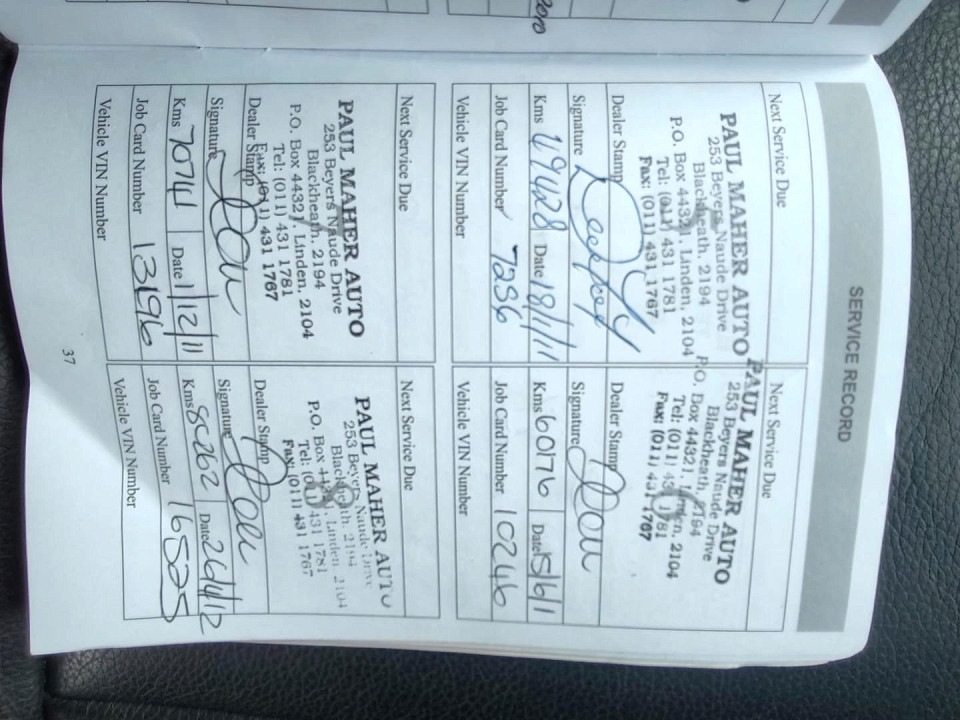 SERVICE RECORD
Next Service Due
PAUL MAHER AUTO
253 Beyers Naude Drive
Blackheath, 2194
P.O. Box 44321, Linden, 2104
Tel: (011) 431 1781
Fax: (011) 431 1767
Dealer Stamp
Signature
Kms 49428 Date 18/1/11
Job Card Number 7286
Vehicle VIN Number
Next Service Due
PAUL MAHER AUTO
253 Beyers Naude Drive
Blackheath, 2194
P.O. Box 44321, Linden, 2104
Tel: (011) 431 1781
Fax: (011) 431 1767
Dealer Stamp
Signature
Kms 60176 Date 15/6/11
Job Card Number 10246
Vehicle VIN Number
Next Service Due
PAUL MAHER AUTO
253 Beyers Naude Drive
Blackheath, 2194
P.O. Box 44321, Linden, 2104
Tel: (011) 431 1781
Fax: (011) 431 1767
Dealer Stamp
Signature
Kms 70741 Date 1/12/11
Job Card Number 13196
Vehicle VIN Number
Next Service Due
PAUL MAHER AUTO
253 Beyers Naude Drive
Blackheath, 2194
P.O. Box 44321, Linden, 2104
Tel: (011) 431 1781
Fax: (011) 431 1767
Dealer Stamp
Signature
Kms 80262 Date
Job Card Number 16525
Vehicle VIN Number
37